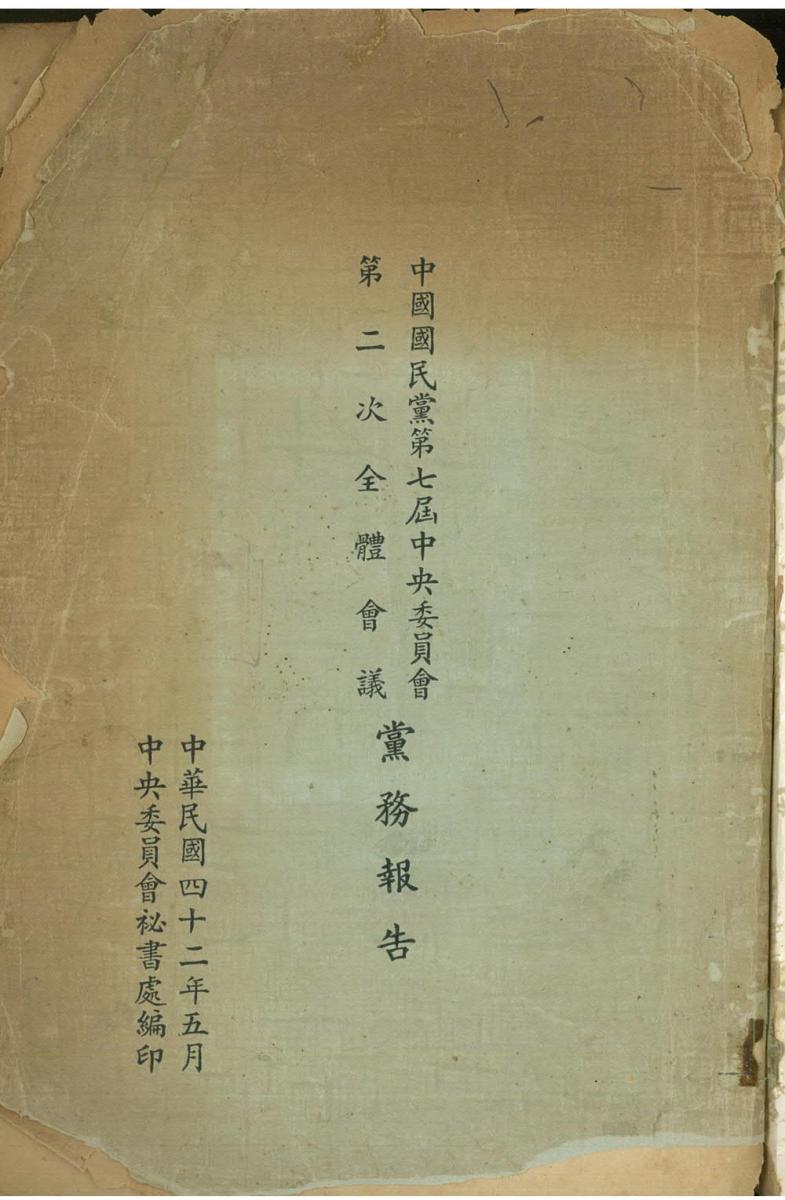 中國國民黨第七屆中央委員會
第二次全體會議
黨務報告
中華民國四十二年五月
中央委員會祕書處編印